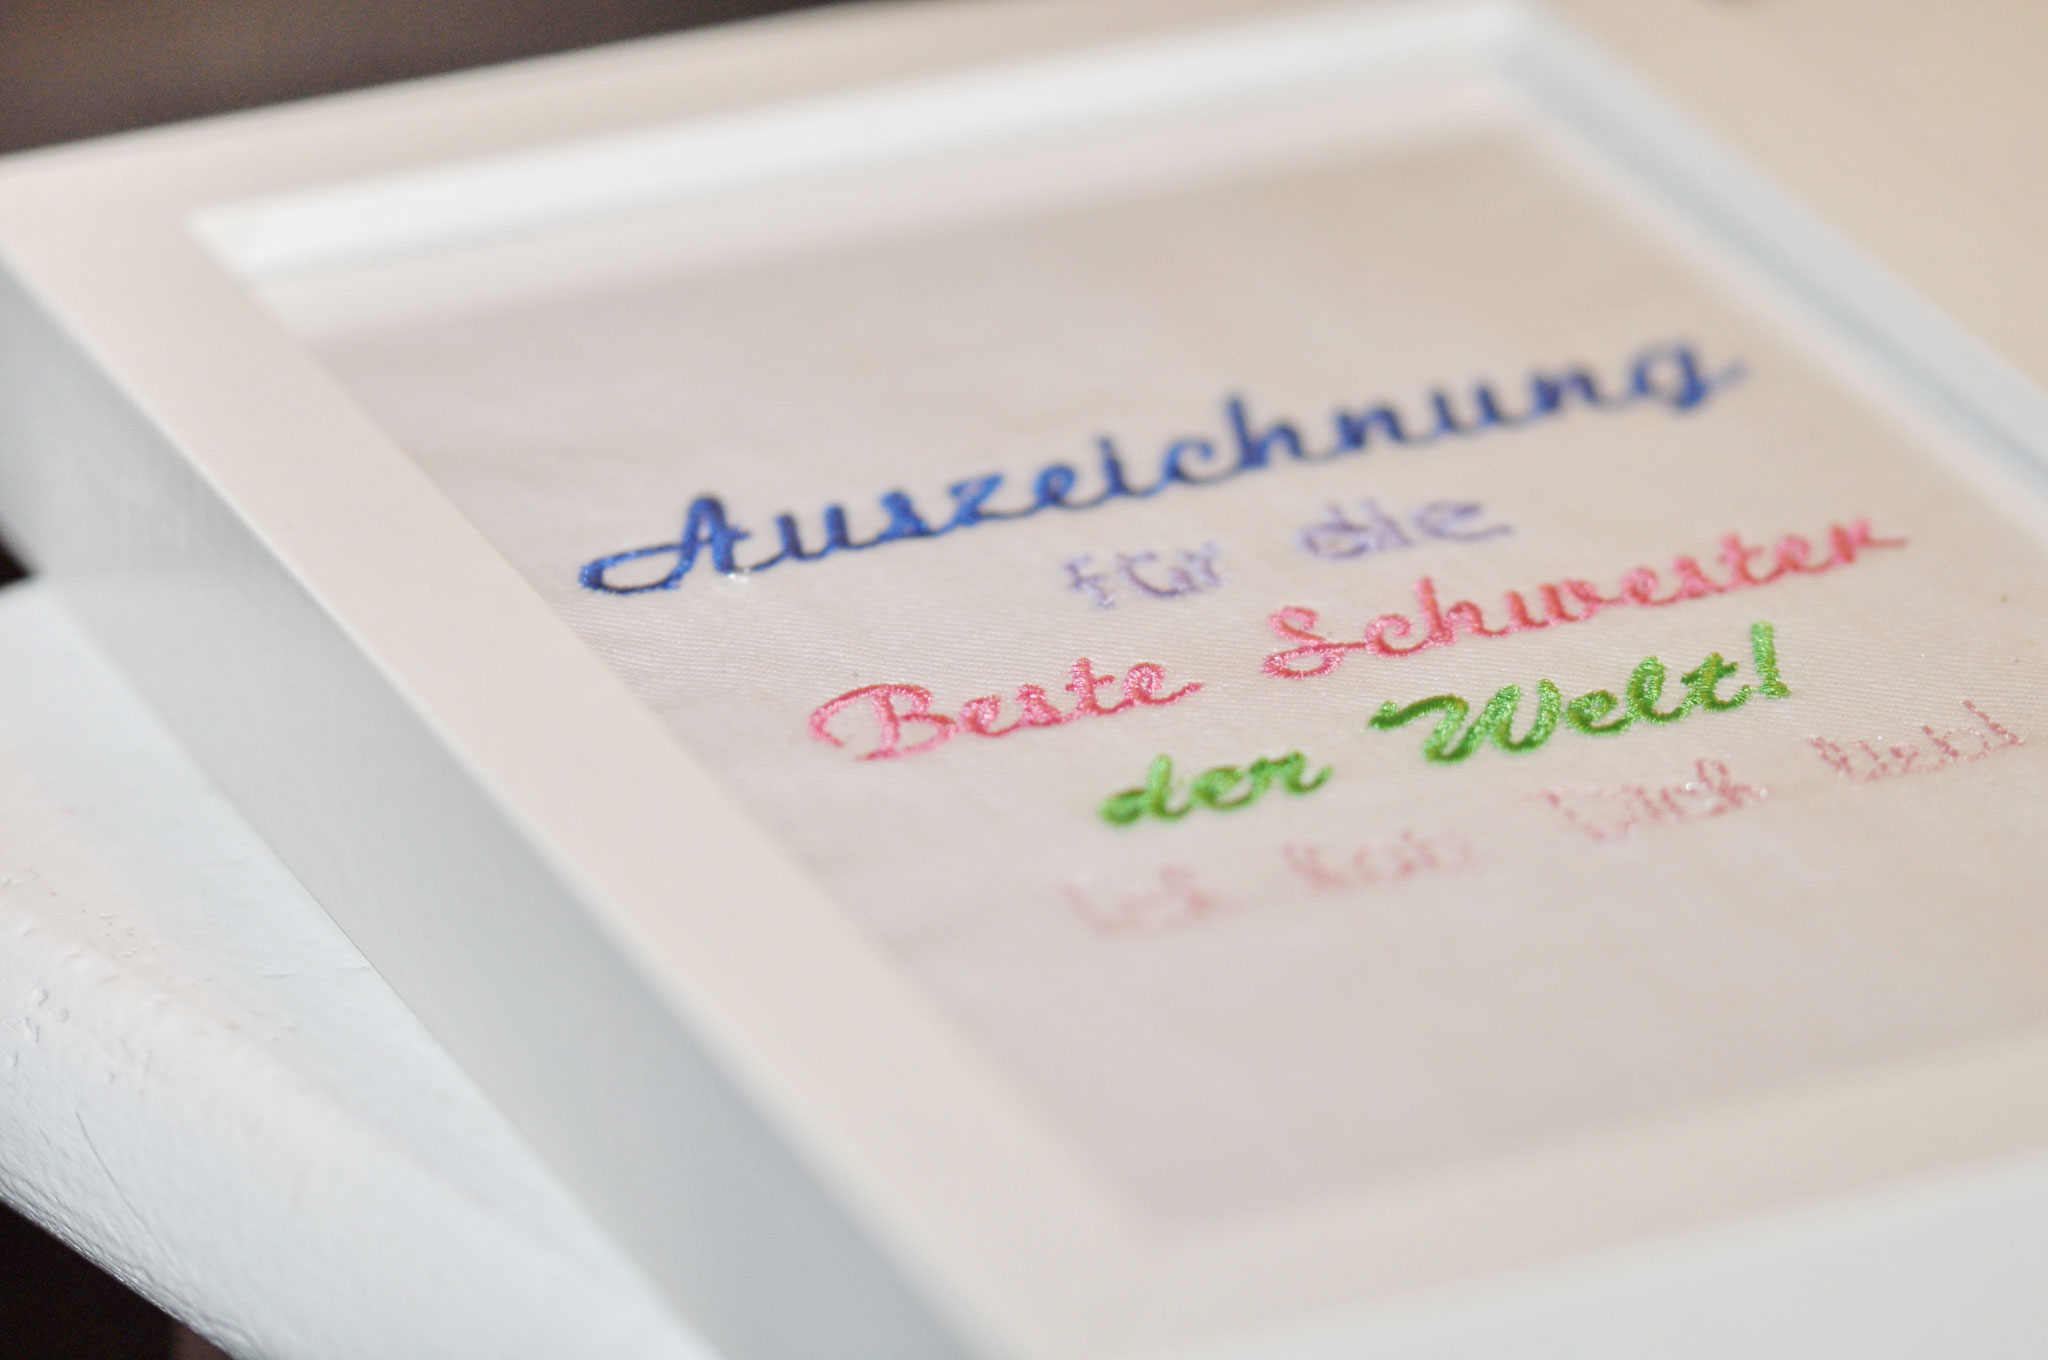 Auszeichnung
für die
Beste Schwester
der Welt!
Ich hab Dich lieb!